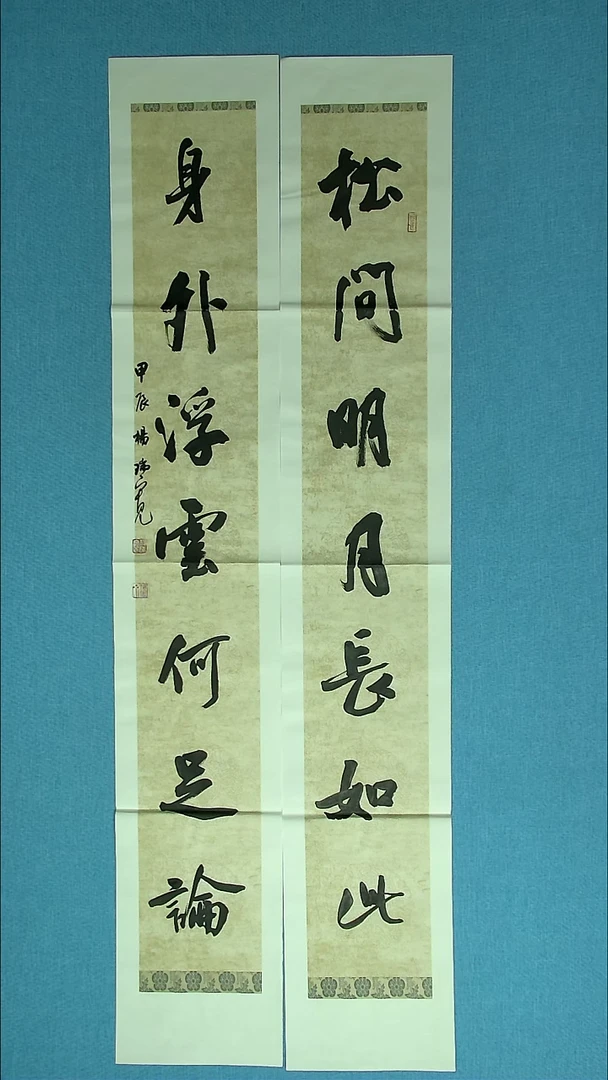 松間明月長如此
身外浮雲何足論
甲辰楊瑞寬